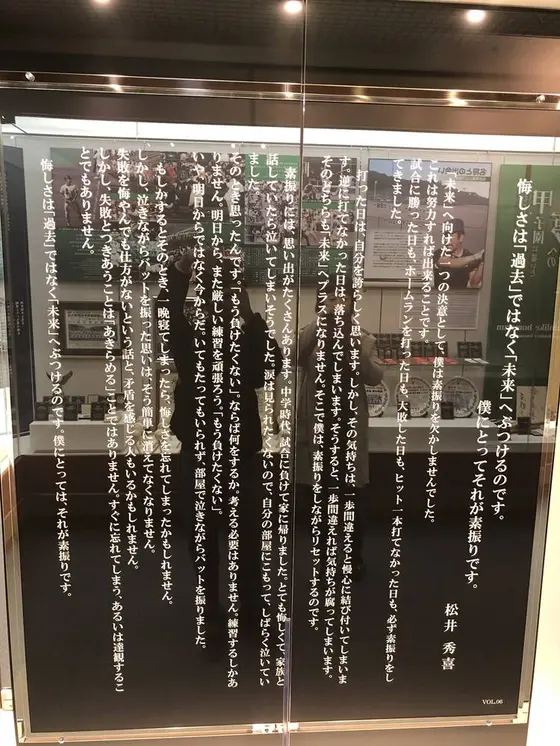 悔しさは「過去」ではなく「未来」へぶつけるのです。
僕にとってそれが素振りです。
松井 秀喜
「未来」へ向けた一つの決意として、僕は素振りを欠かしませんでした。
これは努力すれば出来ることです。
試合に勝った日も、ホームランを打った日も、大敗した日も、ヒット一本打てなかった日も、必ず素振りをし
てきました。
打った日は、自分を誇らしく思います。しかし、その気持ちは、一歩間違えると慢心に結び付いてしまいま
す。逆に打てなかった日は、落ち込んでしまいます。そうすると、一歩間違えれば気持ちが腐ってしまいます。
そのどちらも「未来」へプラスになりません。そこで僕は、素振りをしながらリセットするのです。
素振りには、思い出がたくさんあります。中学時代、試合に負けて家に帰りました。とても悔しくて、家族と
話していたら泣いてしまいそうでした。涙は見られたくないので、自分の部屋にこもって、しばらく泣いてい
ました。
そのとき思ったんです。「もう負けたくない」。ならば何をするか。考える必要はありません。練習するしかあ
りません。明日から、また厳しい練習を頑張ろう。「もう負けたくない」。
いや、明日からではなく、今からだ。いてもたってもいられず、部屋で泣きながらバットを振りました。
もしかするとそのとき、一晩寝てしまったら、悔しさを忘れてしまったかもしれません。
しかし、泣きながらバットを振った思いは、そう簡単に消えてなくなりません。
失敗を悔やんでも仕方がないという話と、矛盾を感じる人もいるかもしれません。
しかし、失敗とつきあうことは、あきらめることではありません。すぐに忘れてしまう、あるいは達観するこ
とでもありません。
悔しさは「過去」ではなく「未来」へぶつけるのです。僕にとっては、それが素振りです。
VOL.06